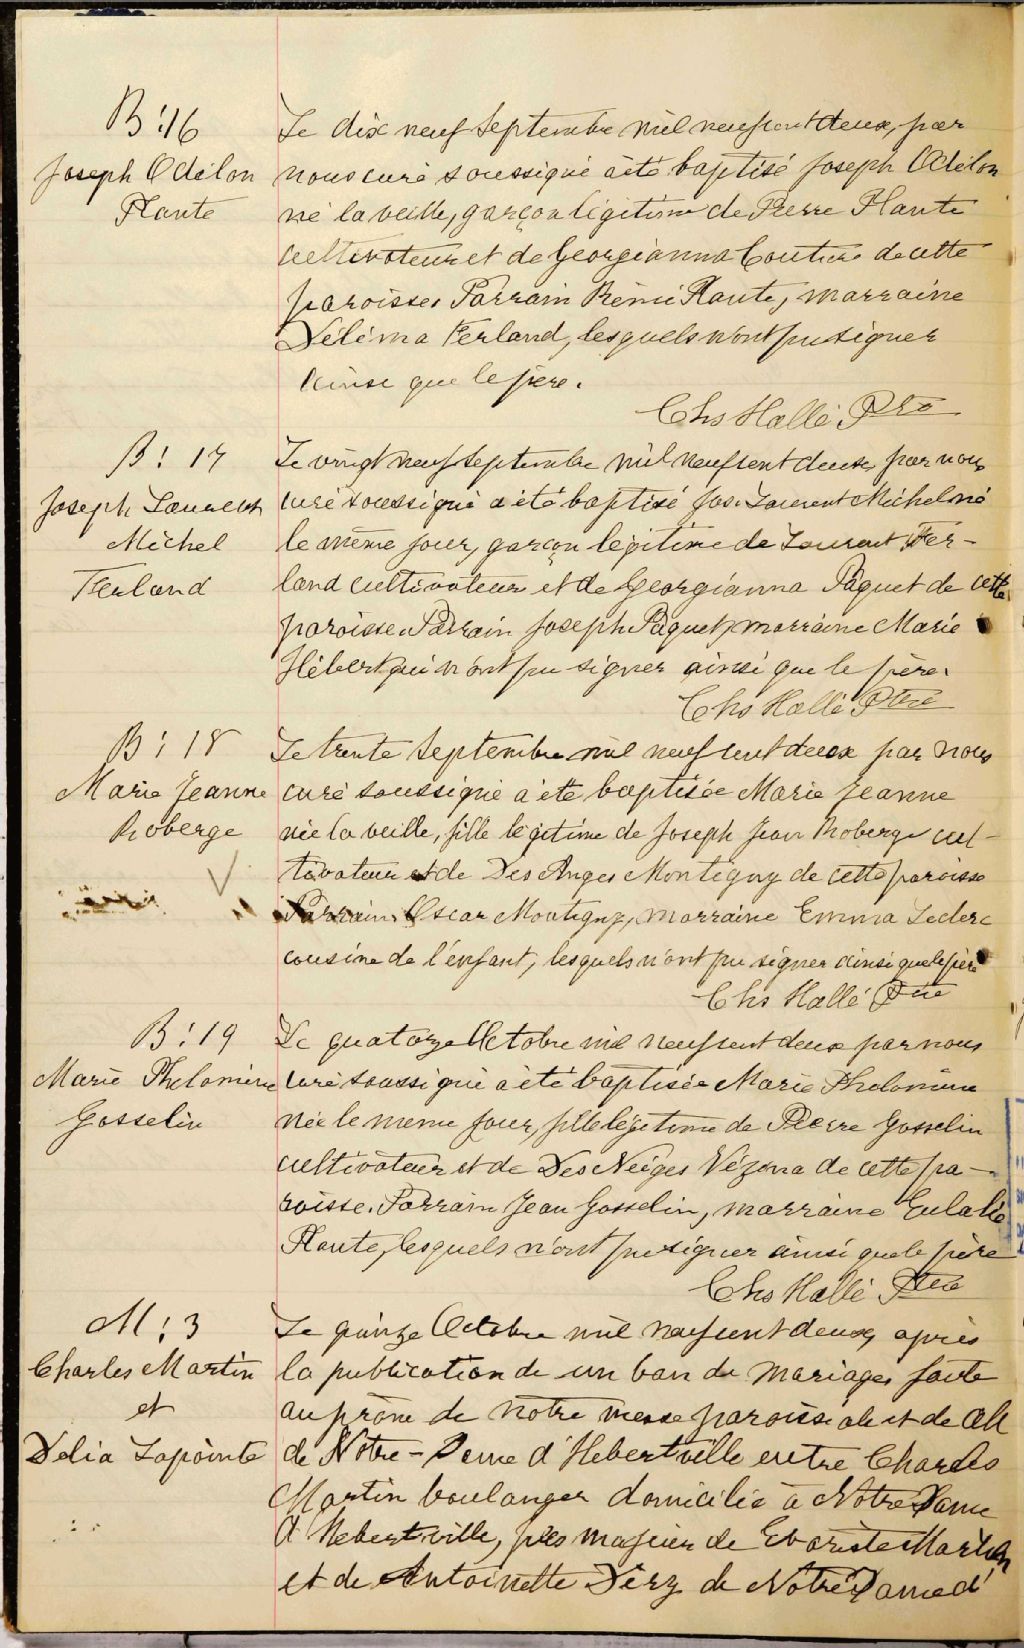 B: 16
Joseph Odilon
Plante
Le dix neuf Septembre mil neuf cent deux, par
nous curé soussigné a été baptisé Joseph Odilon
né la veille, garçon légitime de Pierre Plante
cultivateur et de Georgianna Couture de cette
paroisse. Parrain Rémi Plante, marraine
Délima Ferland, lesquels n'ont pu signer
ainsi que le père.
Chs Hallé Ptre
B: 17
Joseph Laurent
Michel
Ferland
Le vingt neuf Septembre mil neuf cent deux, par nous
curé soussigné a été baptisé Jos. Laurent Michel né
le même jour, garçon légitime de Laurent Fer-
land cultivateur et de Georgianna Paquet de cette
paroisse. Parrain Joseph Paquet, marraine Marie
Hébert qui n'ont pu signer ainsi que le père.
Chs Hallé Ptre
B: 18
Marie Jeanne
Roberge
Le trente Septembre mil neuf cent deux par nous
curé soussigné a été baptisée Marie Jeanne
née la veille, fille légitime de Joseph Jean Roberge cul-
tivateur et de Des Anges Montigny de cette paroisse
Parrain Oscar Montigny, marraine Emma Leclerc
cousine de l'enfant, lesquels n'ont pu signer ainsi que le père
Chs Hallé Ptre
B: 19
Marie Philomène
Gosselin
Le quatorze Octobre mil neuf cent deux par nous
curé soussigné a été baptisée Marie Philomène
née le même jour, fille légitime de Pierre Gosselin
cultivateur et de Des Neiges Vézina de cette pa-
roisse. Parrain Jean Gosselin, marraine Eulalie
Plante, lesquels n'ont pu signer ainsi que le père
Chs Hallé Ptre
M: 3
Charles Martin
et
Délia Lapointe
Le quinze Octobre mil neuf cent deux, après
la publication de un ban de mariages faite
au prône de notre messe paroissiale et de celle
de Notre-Dame d'Hébertville entre Charles
Martin boulanger domicilié à Notre Dame
d'Hébertville, fils majeur de Evariste Martin
et de Antoinette de Notre Dame d'